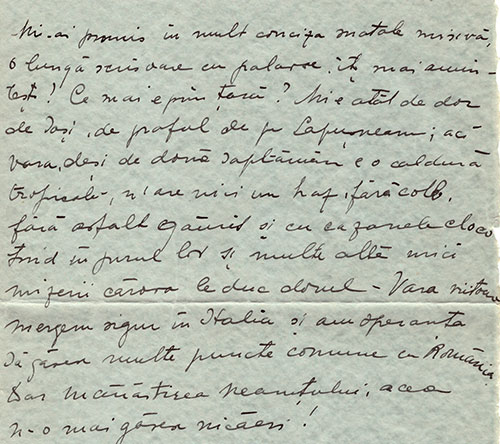 Mi-ai promis în mult conciza matale misivă,
o lungă scrisoare cu palavre; îți mai amin-
tești! Ce mai e prin țară? Mi-e atât de dor
de Iași, de praful de pe Lapușneanu; aci
vara, deși de două săptămâni e o caldură
tropicală, n'are nici un haz, fără colb,
fără asfalt găurit și cu cazanele cloco
tind în jurul lor și multe alte mici
mizerii cărora le duc dorul - Vara viitoare
mergem sigur în Italia și am speranta
să găsesc multe puncte comune cu România.
Dar Mănăstirea Neamțului, aceea
n-o mai găsesc nicăeri!